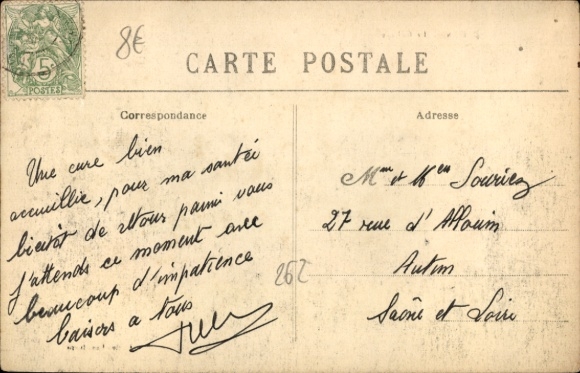 8€
5
POSTES
CARTE POSTALE
Correspondance
Adresse
Une cure bien
accueillie, pour ma santée
bientôt de retour parmi vous
J'attends ce moment avec
beaucoup d'impatience
baisers a tous
Mme et Mr Souriez
27 rue d'
Autun
Saône et Loire
262